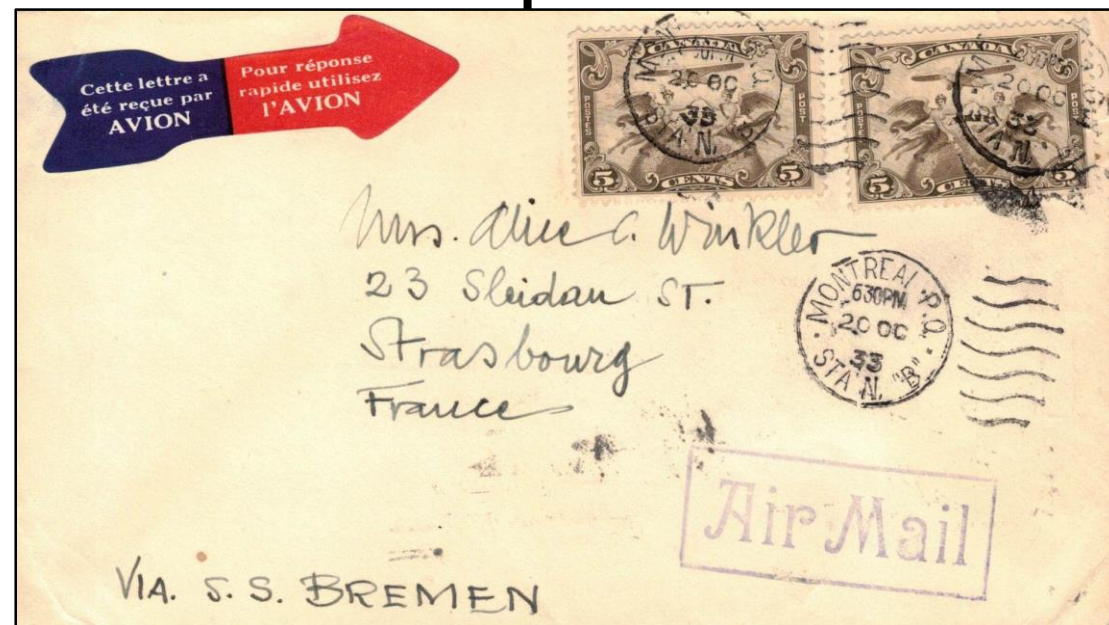 Cette lettre a
été reçue par
AVION
Pour réponse
rapide utilisez
l'AVION
CANADA
POSTES
POST
5 CENTS 5
CANADA
POSTES
POST
5 CENTS 5
MONTREAL P.Q.
20 OC
33
STA'N. "B"
MONTREAL P.Q.
20 OC
33
STA'N. "B"
Mrs. Alice C. Winkler
23 Sleidan ST.
Strasbourg
France
MONTREAL P.Q.
630PM
20 OC
33
STA'N. "B"
Air Mail
VIA. S. S. BREMEN